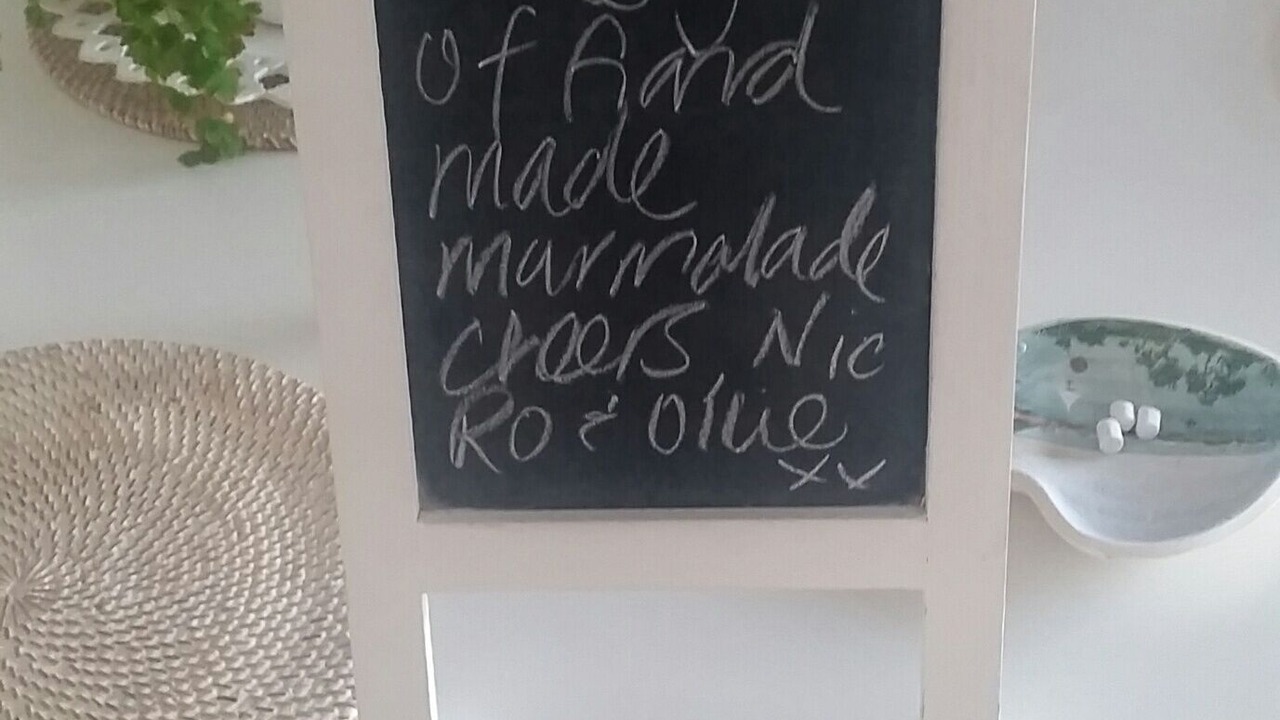 of hand
made
marmalade
cheers Nic
Ro & Ollie
xx